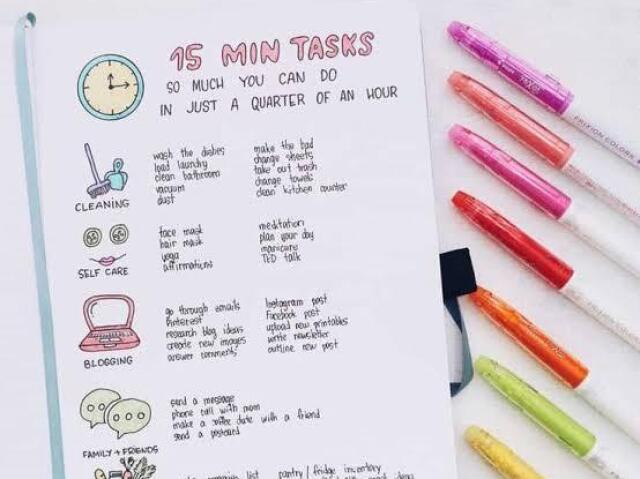 15 MIN TASKS
SO MUCH YOU CAN DO
IN JUST A QUARTER OF AN HOUR
CLEANING
wash the dishes
load laundry
clean bathroom
vacuum
dust
make the bad
change sheets
take out trash
change towels
clean kitchen counter
SELF CARE
face mask
hair mask
yoga
affirmations
meditation
plan your day
manicure
TED talk
BLOGGING
go through emails
Pinterest
research blog ideas
create new images
answer comments
Instagram post
Facebook post
upload new printables
write newsletter
outline new post
FAMILY + FRIENDS
send a message
phone call with mom
make a coffee date with a friend
send a postcard
list
pantry / fridge inventory
ideas
FRIXION COLORS